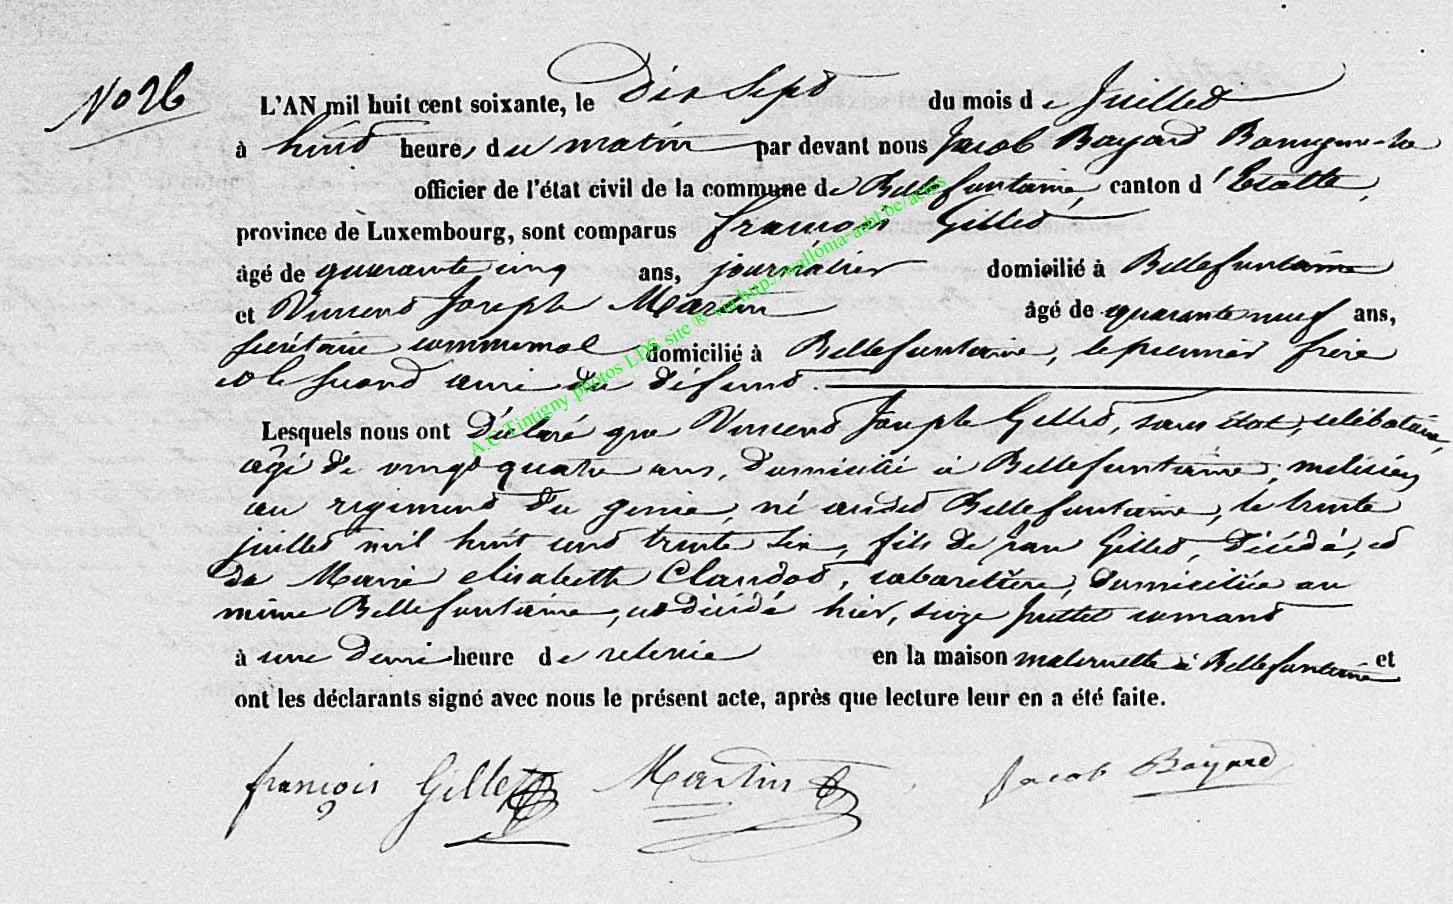 No 26
L'AN mil huit cent soixante, le dix sept du mois de Juillet
à huit heures du matin par devant nous Jacob Bayard Bourgmestre
officier de l'état civil de la commune de Bellefontaine, canton d'Etalle,
province de Luxembourg, sont comparus françois Gillet
âgé de quarante cinq ans, journalier domicilié à Bellefontaine
et Vincent Joseph Martin âgé de quarante neuf ans,
secrétaire communal domicilié à Bellefontaine, le premier frère
et le second ami du défunt.
Lesquels nous ont déclaré que Vincent Joseph Gillet, sans état, célibataire,
agé de vingt quatre ans, domicilié à Bellefontaine, milicien
au régiment du génie, né audit Bellefontaine, le trente
juillet mil huit cent trente six, fils de Gillet, décédé, et
de Marie elisabeth Claudot, cabaretière, domiciliée au
même Bellefontaine, est décédé hier, seize Juillet courant
à une demi heure de relevée en la maison maternelle à Bellefontaine et
ont les déclarants signé avec nous le présent acte, après que lecture leur en a été faite.
françois Gillet Martin Jacob Bayard
A.C Tintigny photos LDS site ® via http://wallonia-asbl.be/actes